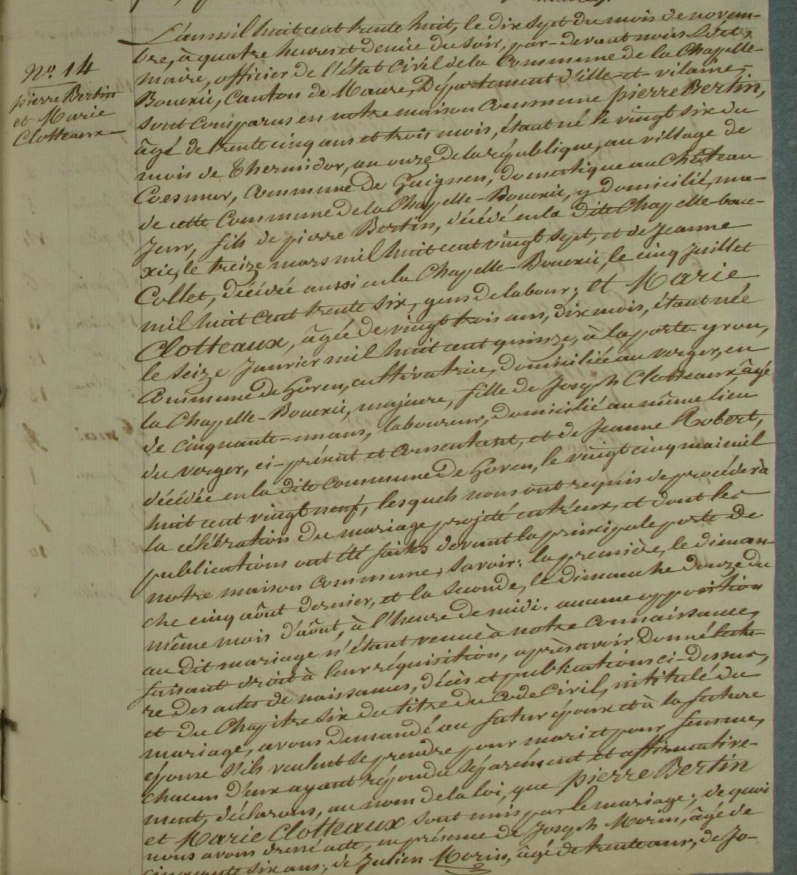 N.º 14
pierre Bertin
et Marie
Clotteaux
L'an mil huit cent trente huit, le dix sept du mois de novem-
bre, à quatre heures et demie du soir, par-devant nous
maire, officier de l'état Civil de la Commune de la Chapelle-
Bouexic, Canton de Maure, Département d'ille-et-vilaine,
sont comparus en notre maison Commune pierre Bertin,
âgé de trente cinq ans et trois mois, étant né le vingt six du
mois de Thermidor, an onze de la république, au village de
Coesmur, Commune de Guignen, domestique au Château
de cette Commune de la Chapelle-Bouexic, y domicilié, ma-
jeur, fils de pierre Bertin, décédé en la dite Chapelle-boue-
xic, le treize mars mil huit cent vingt sept, et de Jeanne
Collet, décédée aussi en la Chapelle-Bouexic, le cinq Juillet
mil huit cent trente six, gens de labour; et Marie
Clotteaux, âgée de vingt trois ans, dix mois, étant née
le seize Janvier mil huit cent quinze, à la porte
Commune de Goven, cultivatrice, domiciliée au verger, en
la Chapelle-Bouexic, majeure, fille de Joseph Clotteaux, âgé
de cinquante-un ans, laboureur, domicilié au même lieu
du verger, ci-présent et consentant, et de Jeanne Robert,
décédée en la dite Commune de Goven, le vingt cinq mai mil
huit cent vingt neuf, lesquels nous ont requis de procéder à
la célébration du mariage projeté entr'eux, et dont les
publications ont été faites devant la principale porte de
notre maison commune, savoir: la première, le diman-
che cinq août dernier, et la seconde, le dimanche douze du
même mois d'août, à l'heure de midi. aucune opposition
au dit mariage n'étant venue à notre connaissance,
faisant droit à leur réquisition, après avoir donné lectu-
re des actes de naissances, décès et publications ci-dessus,
et du Chapitre six du titre du Code Civil, intitulé du
mariage, avons demandé au futur époux et à la future
épouse s'ils veulent se prendre pour mari et pour femme,
chacun d'eux ayant répondu séparément et affirmative-
ment, déclarons, au nom de la loi, que pierre Bertin
et Marie Clotteaux sont unis par le mariage; de quoi
nous avons dressé acte, en présence de Joseph Morin, âgé de
cinquante six ans; de Julien Morin, âgé de trente ans, de Jo-